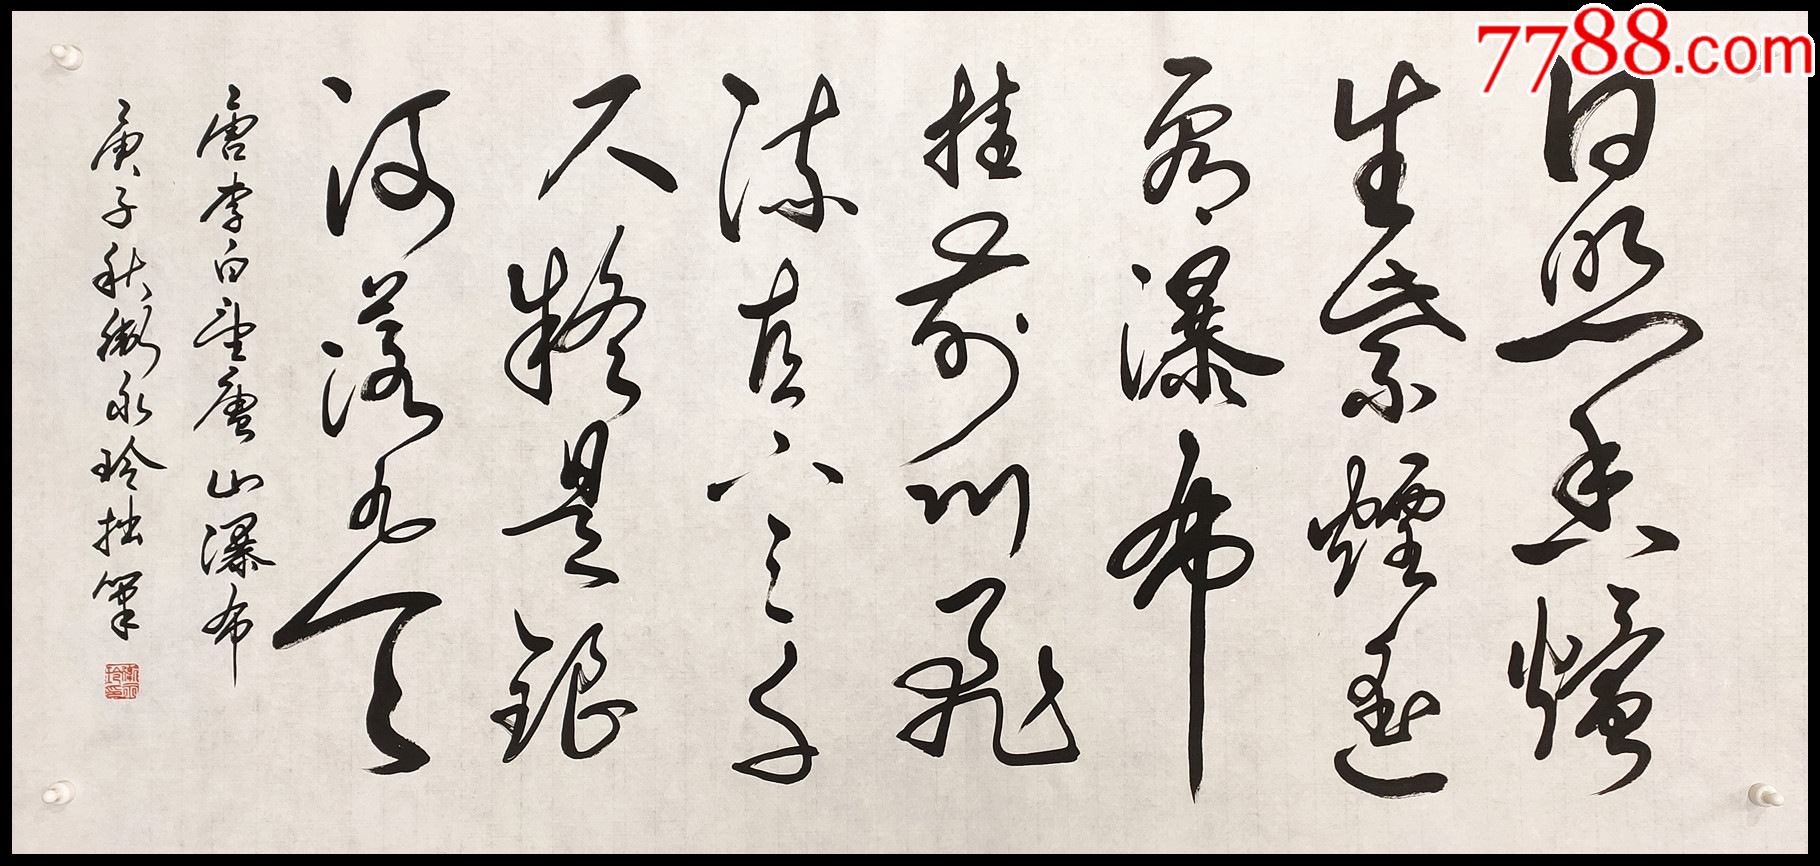 7788.com
日照香爐
生紫煙遙
看瀑布
挂前川飛
流直下三千
尺疑是銀
河落九天
唐李白望廬山瀑布
庚子秋衛永玲拙筆